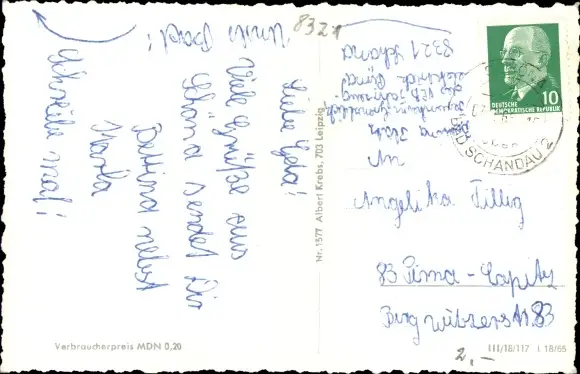 8321
Unsre Post!
Liebe Gela!
Viele Grüße aus
Schöna sendet Dir
Bettina nebst
Marla
Schreibe mal!
Verbraucherpreis MDN 0,20
Nr. 1577 Albert Krebs, 703 Leipzig
8321 Schöna
DEUTSCHE
DEMOKRATISCHE REPUBLIK
10
BAD SCHANDAU 2
An
Angelika Tillig
83 Pirna-Copitz
Burgwitzerstr. 83
III/18/117 L 18/65
2,-